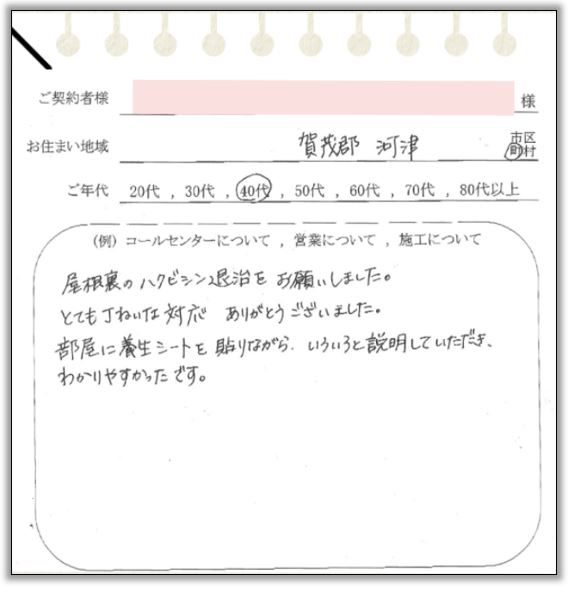 ご契約者様 様
お住まい地域 賀茂郡 河津 市区町村
ご年代 20代 , 30代 , 40代 , 50代 , 60代 , 70代 , 80代以上
(例) コールセンターについて , 営業について , 施工について
屋根裏のハクビシン退治をお願いしました。
とても丁ねいな対応 ありがとうございました。
部屋に養生シートを貼りながら、いろいろと説明していただき、
わかりやすかったです。